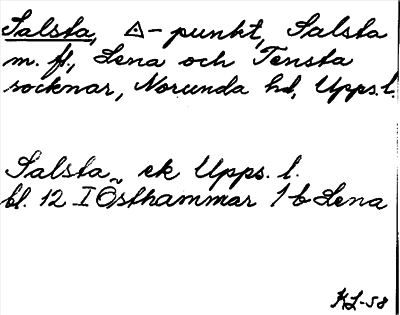 Salsta, △-punkt, Salsta
m. fl., Lena och Tensta
socknar, Norunda hd, Upps. l.
Salsta ek Upps. l.
bl. 12 I Östhammar 1 b Lena
KL-58